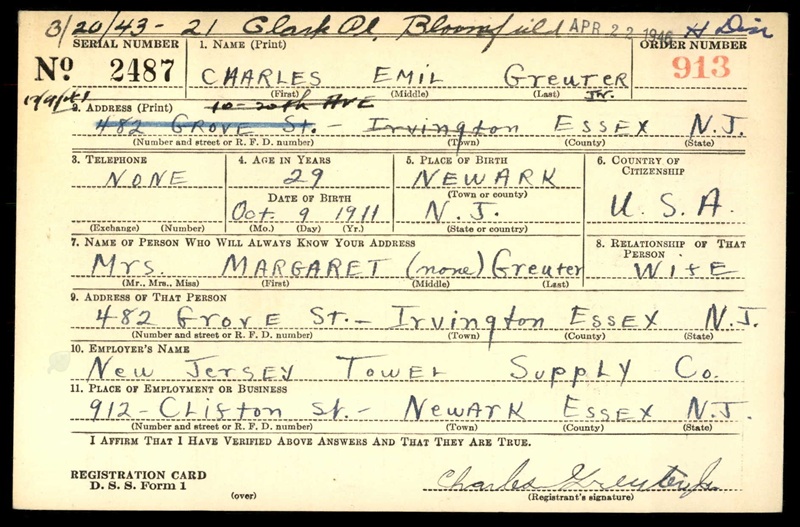 3/20/43 - 21 Clark Pl. Bloomfield APR 22 1946 H Div
SERIAL NUMBER 1. NAME (Print) ORDER NUMBER
No 2487 CHARLES EMIL Greuter 913
(First) (Middle) (Last) Jr.
12/9/41 10-20th AVE
2. ADDRESS (Print)
482 GROVE St. - Irvington ESSEX N.J.
(Number and street or R. F. D. number) (Town) (County) (State)
3. TELEPHONE 4. AGE IN YEARS 5. PLACE OF BIRTH 6. COUNTRY OF CITIZENSHIP
NONE 29 NEWARK
DATE OF BIRTH (Town or county)
Oct. 9 1911 N.J. U.S.A.
(Exchange) (Number) (Mo.) (Day) (Yr.) (State or country)
7. NAME OF PERSON WHO WILL ALWAYS KNOW YOUR ADDRESS 8. RELATIONSHIP OF THAT PERSON
Mrs. MARGARET (none) Greuter WIFE
(Mr., Mrs., Miss) (First) (Middle) (Last)
9. ADDRESS OF THAT PERSON
482 Grove St. - Irvington ESSEX N.J.
(Number and street or R. F. D. number) (Town) (County) (State)
10. EMPLOYER'S NAME
New Jersey Towel Supply Co.
11. PLACE OF EMPLOYMENT OR BUSINESS
912 - Clifton St. - Newark Essex N.J.
(Number and street or R. F. D. number) (Town) (County) (State)
I AFFIRM THAT I HAVE VERIFIED ABOVE ANSWERS AND THAT THEY ARE TRUE.
REGISTRATION CARD
D. S. S. Form 1
(over)
Charles Greuter Jr.
(Registrant's signature)